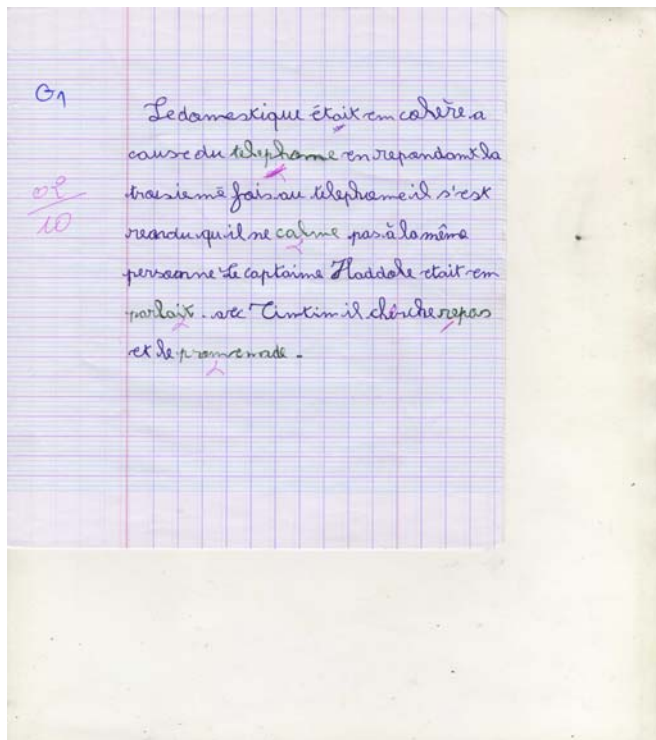 G1
Le domestique était em colère a
cause du telephome en repondomt la
troisieme fois au telephome il s'est
rendu qu'il ne calme pas à la même
personne Le captaime Haddole etait em
parlait. avec Timtim il chèrche repos
et le promemade.
02
10